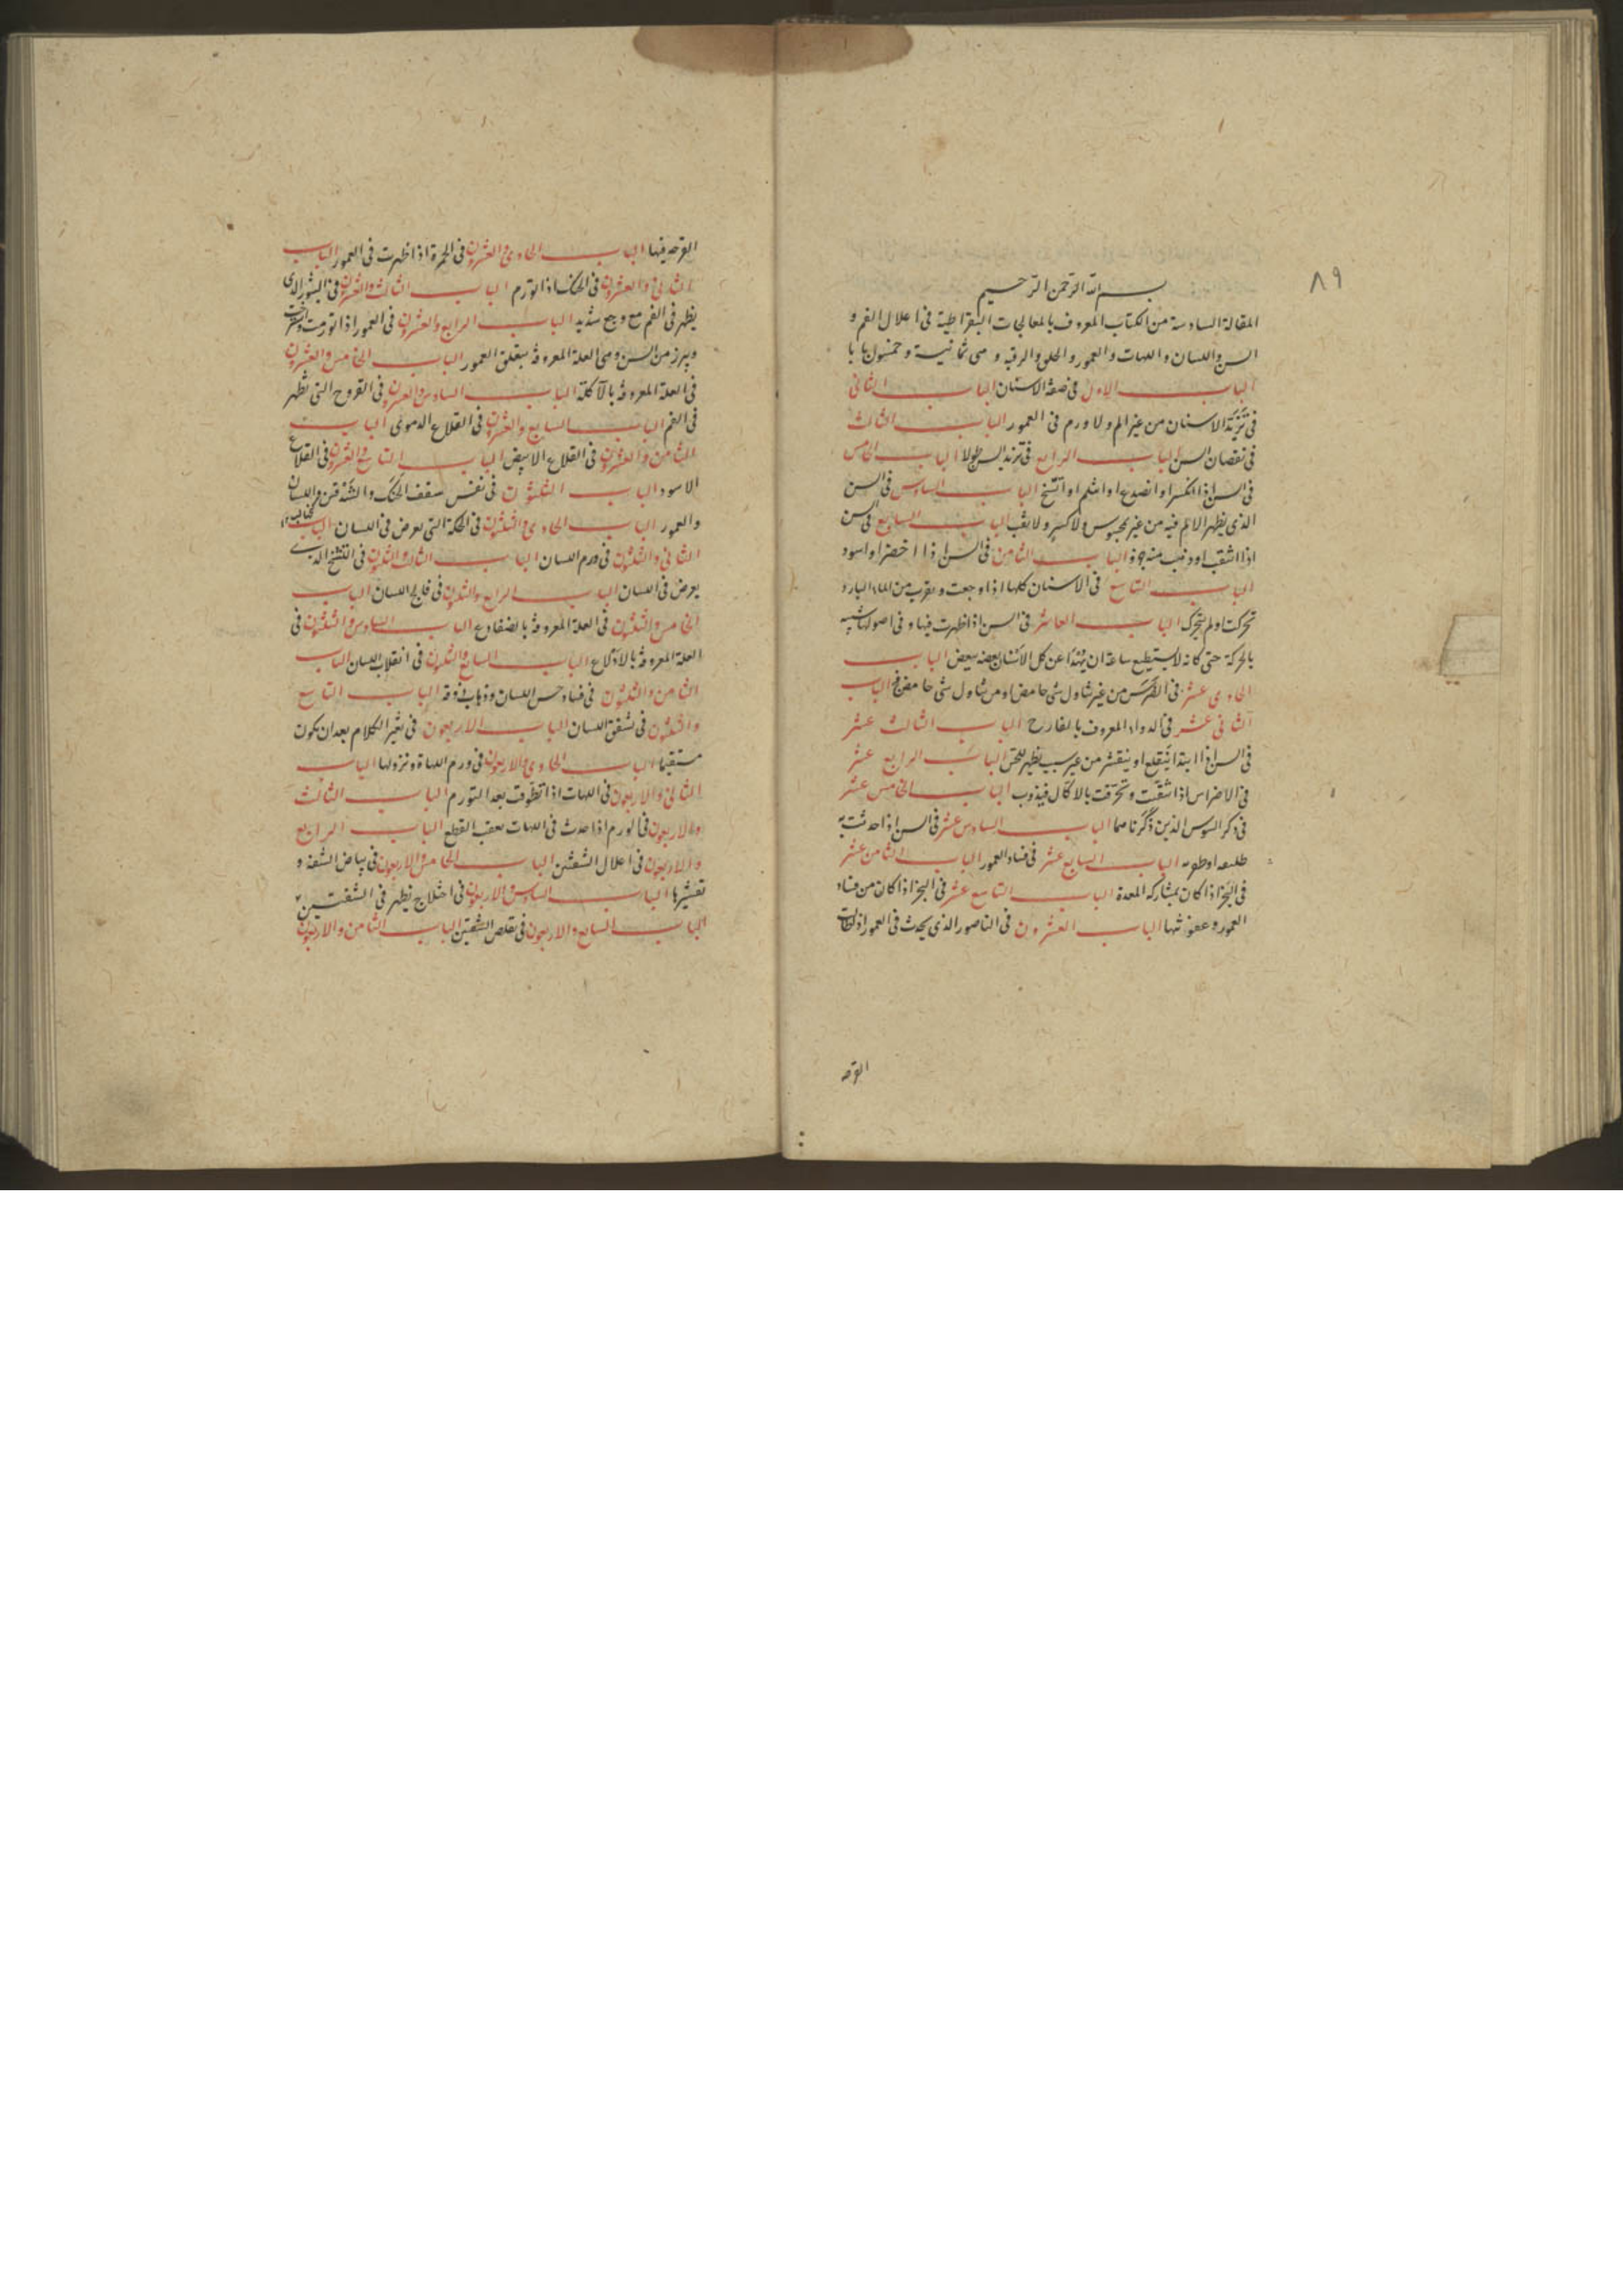 ٨٩
بسم الله الرحمن الرحيم
المقالة السادسة من الكتاب المعروف بالمعالجات البقراطية فى اعلال الفم و
السن واللسان واللهات والعمور والحلق والرقبة وهى ثمانية وخمسون بابا
الباب الاول فى صفة الاسنان الباب الثانى
فى تزيد الاسنان من غير الم ولا ورم فى العمور الباب الثالث
فى نقصان السن الباب الرابع فى تزيد السن طولا الباب الخامس
فى السن اذا انكسر او انصدع او انثلم او اتسخ الباب السادس فى السن
الذى يظهر الالم فيه من غير محبوس ولا كسر ولا ثقب الباب السابع فى سن
اذا انثقب او ذهب منه جزو الباب الثامن فى السن اذا اخضر او اسود
الباب التاسع فى الاسنان كلها اذا وجعت وبقرب من الماء البارد
تحركت او لم تتحرك الباب العاشر فى السن اذا ظهرت فيها وفى اصولها شبيه
بالحركة حتى كانه لا يستطيع ساعة ان عن كل الاسنان بعضه ببعض الباب
الحادى عشر فى الضرس من غير تناول شى حامض او من تناول شى حامض الباب
الثانى عشر فى الدواء المعروف بالفارح الباب الثالث عشر
فى السن اذا ابتدا ينقلع او ينقشر من غير سبب يظهر للحس الباب الرابع عشر
فى الاضراس اذا تثقبت وتخرقت بالاكال فيذوب الباب الخامس عشر
فى ذكر السوس الذين ذكرناهما الباب السادس عشر فى السن اذا حدثت به
الباب السابع عشر فى فساد العمور الباب الثامن عشر
فى البخر اذا كان بمشاركة المعدة الباب التاسع عشر فى البخر اذا كان من فساد
العمور وعفونتها الباب العشرون فى الناصور الذى يحدث فى العمور اذا طالت
القرحه
القرحه فيها الباب الحادى والعشرون فى الحمرة اذا ظهرت فى العمور الباب
الثانى والعشرون فى الحنك اذا تورم الباب الثالث والعشرون فى البثور الذى
يظهر فى الفم مع وجع شديد الباب الرابع والعشرون فى العمور اذا تورمت واسترخت
وبرز من السن وهى العلة المعروفة بتعلق العمور الباب الخامس والعشرون
فى العلة المعروفة بالآكلة الباب السادس والعشرون فى القروح التى تظهر
فى الفم الباب السابع والعشرون فى القلاع الدموى الباب
الثامن والعشرون فى القلاع الابيض الباب التاسع والعشرون فى القلاع
الاسود الباب الثلثون فى نفس سقف الحنك والشدقين واللسان
والعمور الباب الحادى والثلثون فى الحكة التى تعرض فى اللسان الباب
الثانى والثلثون فى ورم اللسان الباب الثالث والثلثون فى التشنج الذى
يعرض فى اللسان الباب الرابع والثلثون فى فالج اللسان الباب
الخامس والثلثون فى العلة المعروفة بالضفادع الباب السادس والثلثون فى
العلة المعروفة بالادلاع الباب السابع والثلثون فى انقلاب اللسان الباب
الثامن والثلثون فى فساد حس اللسان وذهاب ذوقه الباب التاسع
والثلثون فى تشقق اللسان الباب الاربعون فى تغير الكلام بعد ان يكون
مستقيما الباب الحادى والاربعون فى ورم اللهاة ونزولها الباب
الثانى والاربعون فى اللهات اذا تطوقت بعد التورم الباب الثالث
والاربعون فى الورم اذا حدث فى اللهات بعقب القطع الباب الرابع
والاربعون فى اعلال الشفتين الباب الخامس والاربعون فى بياض الشفة و
تقشيرها الباب السادس والاربعون فى اختلاج يظهر فى الشفتين
الباب السابع والاربعون فى تقلص الشفتين الباب الثامن والاربعون